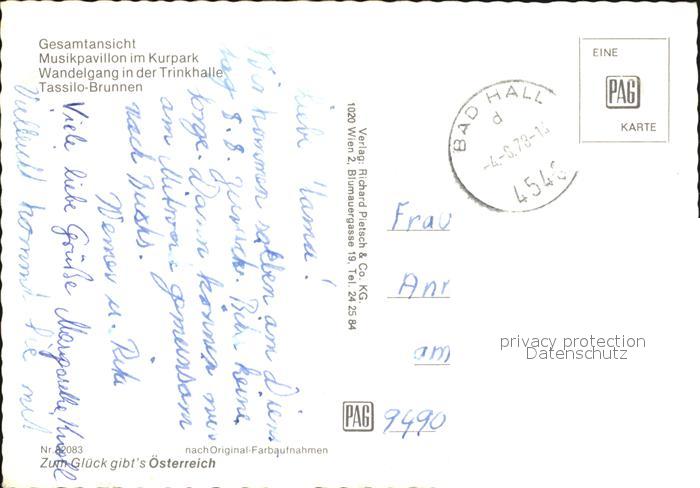 Gesamtansicht
Musikpavillon im Kurpark
Wandelgang in der Trinkhalle
Tassilo-Brunnen
Liebe Mama!
Wir kommen am Diens
tag 8.8. zurück. Bitte keine
Sorge. Dann können wir
am Mittwoch gemeinsam
nach
Werner u. Rita
Viele liebe Grüße Margarethe
Vielleicht kommt Sie mit
Nr. 82083
nach Original-Farbaufnahmen
Zum Glück gibt's Österreich
Verlag: Richard Pietsch & Co. KG.
1020 Wien 2, Blumauergasse 19, Tel. 24 25 84
BAD HALL
d
4540
EINE
PAG
KARTE
Frau
am
PAG
9490
privacy protection
Datenschutz